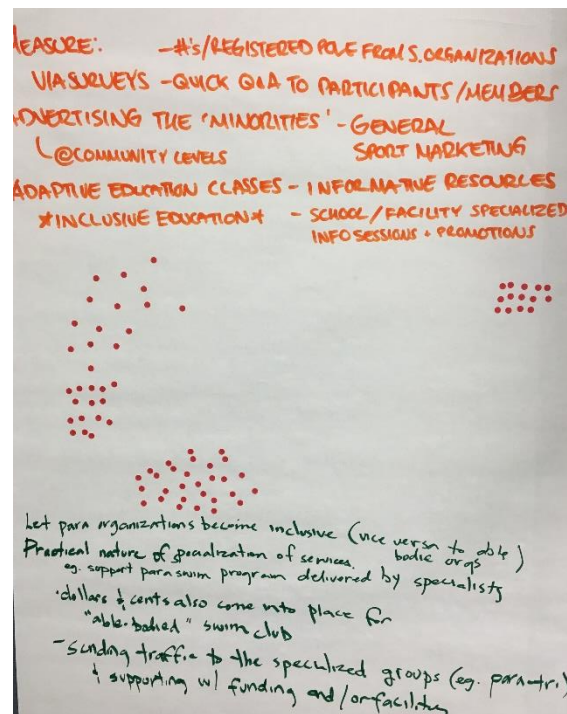 MEASURE: -#'s/REGISTERED POLE FROM S. ORGANIZATIONS
VIA SURVEYS - QUICK Q&A TO PARTICIPANTS/MEMBERS
ADVERTISING THE 'MINORITIES' - GENERAL
SPORT MARKETING
@COMMUNITY LEVELS
ADAPTIVE EDUCATION CLASSES - INFORMATIVE RESOURCES
*INCLUSIVE EDUCATION* - SCHOOL/FACILITY SPECIALIZED
INFO SESSIONS + PROMOTIONS
Let para organizations become inclusive (vice versa to able
bodie orgs)
Practical nature of specialization of services.
eg. support para swim program delivered by specialists
· dollars & cents also come into place for
"able-bodied" swim club
- Sending traffic to the specialized groups (eg. para-tri)
& supporting w/ funding and/or facility